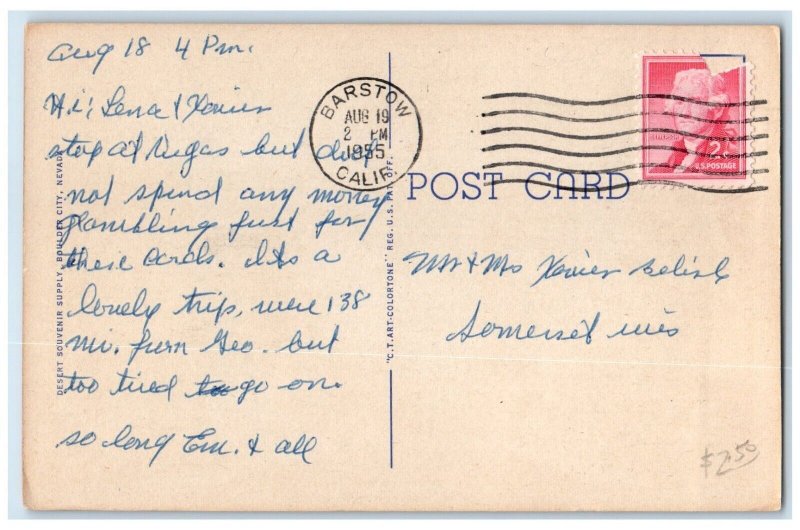 Aug 18 4 Pm.
Hi; Lena & Xavier
stop at Vegas but did
not spend any money
glambling just for
these cards. Its a
lovely trip, were 138
mi. from Geo. but
too tired to go on.
so long Em. & all
DESERT SOUVENIR SUPPLY, BOULDER CITY, NEVADA
BARSTOW
AUG 19
2 PM
1955
CALIF.
"C.T. ART-COLORTONE" REG. U.S. PAT. OFF.
POST CARD
2¢
U.S. POSTAGE
Mr & Mrs Xavier Belisle
Somerset Wis
$2.50